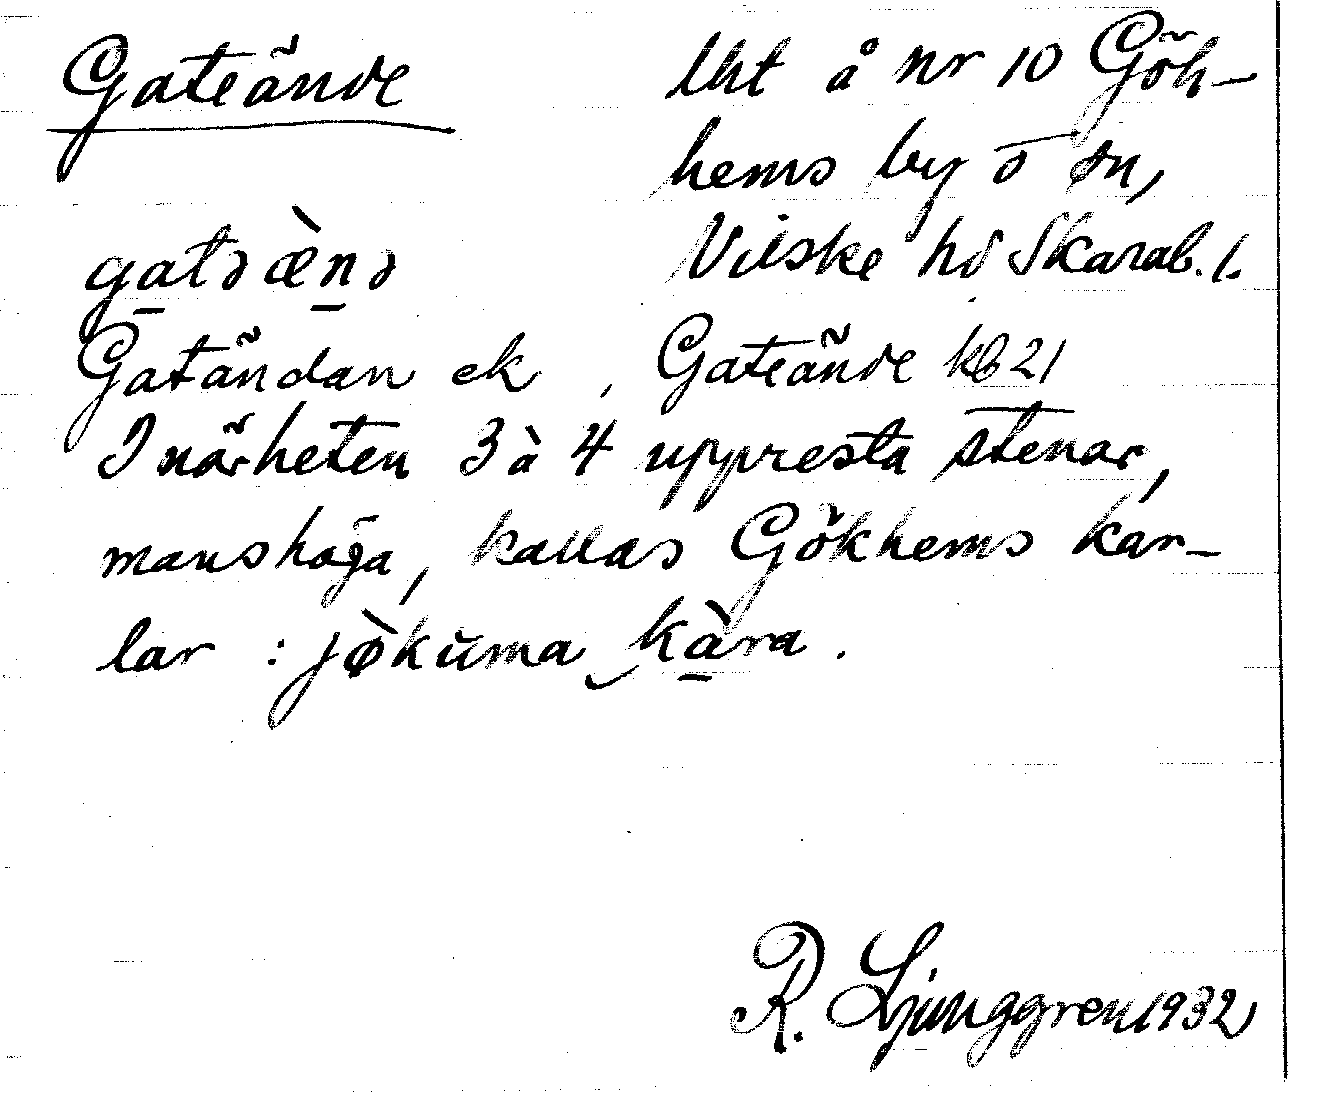 Gateände
lht å nr 10 Gök-
hems by o sn,
Vilske hd Skarab. l.
gatə æ̀nə
Gatändan ek, Gateände kb 21
I närheten 3 à 4 uppresta stenar,
manshöga, kallas Gökhems kar-
lar : jø̀kŭma kàra.
R. Ljunggren 1932